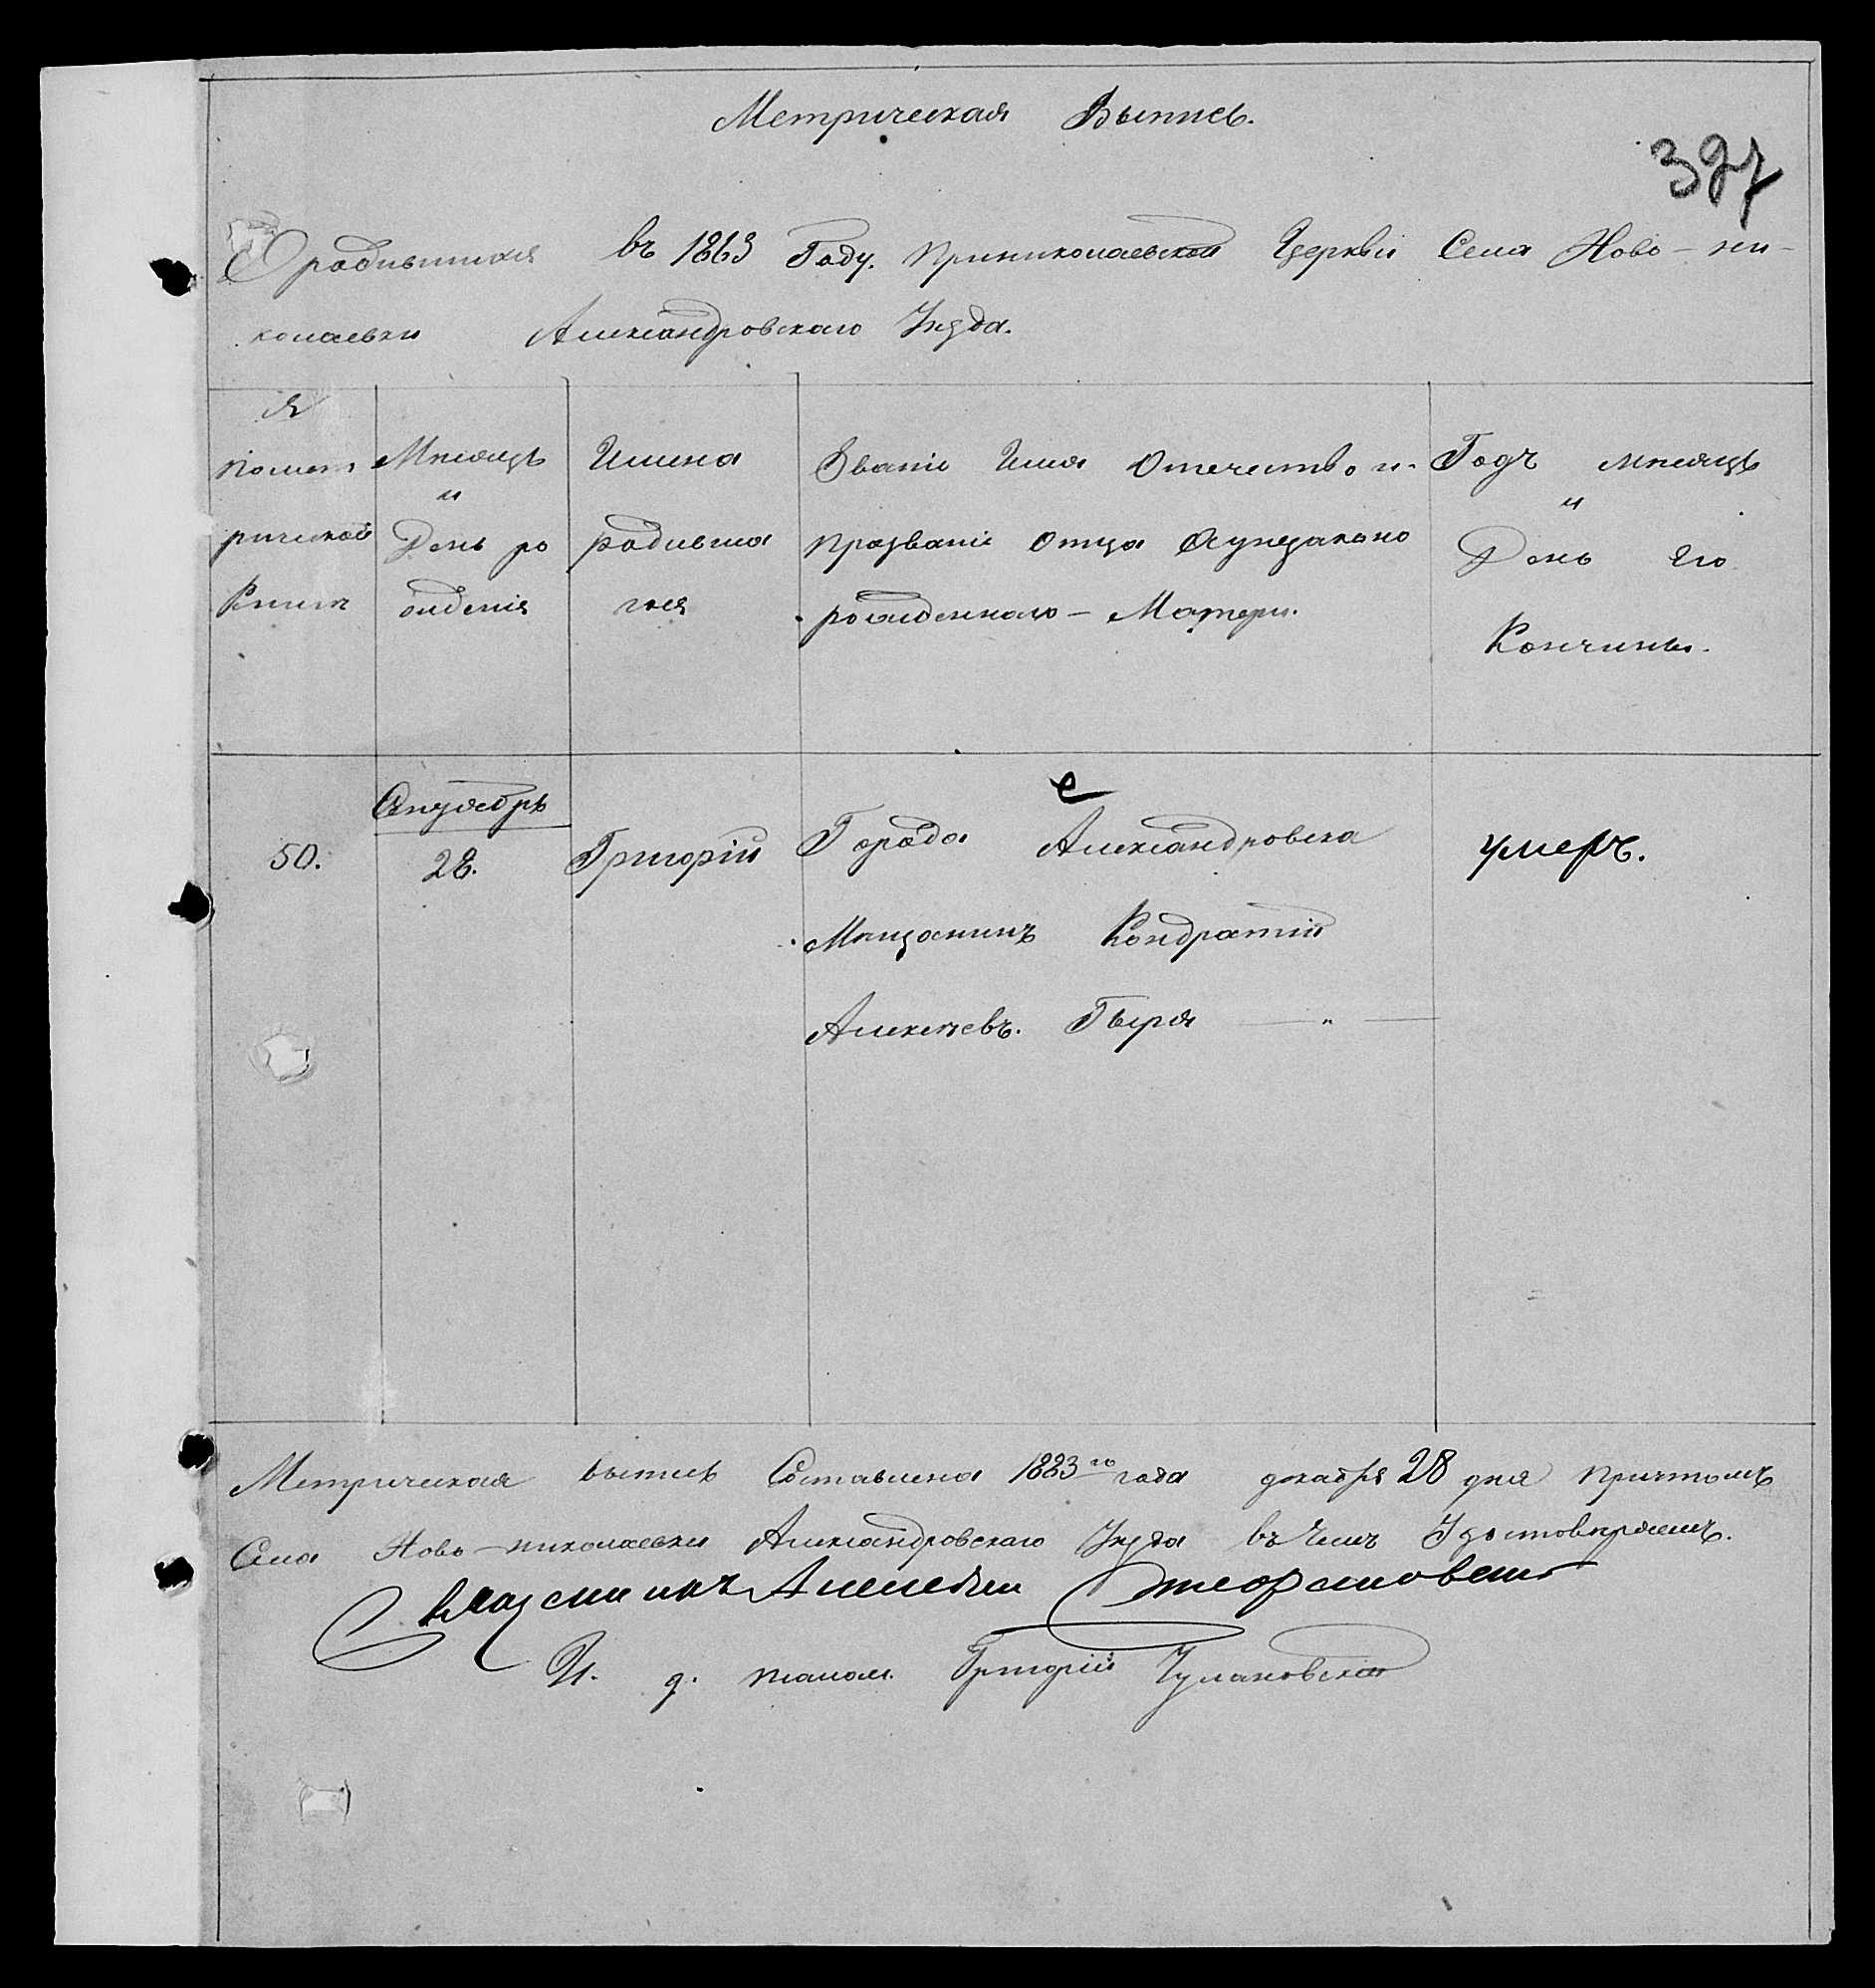 Метрическая Выпись.
397
О родившихся въ 1863 Году. При николаевской Церкви Села Ново-ни-
колаевки Александровскаго Уѣзда.
№
по мет
рической
Книгѣ
Мѣсяцъ
и
День ро
жденія
Имена
родивша
гося
Званіе Имя Отечество и
прозваніе отца
рожденнаго - Матери.
Годъ мѣсяцъ
и
День его
Кончины.
50.
28.
Григорій
Города Александровска
Мѣщанинъ Кондратий
Алексѣевъ. Гыря — „ —
умеръ.
Метрическая выпись Составлена 1883го года декабря 28 дня причтомъ
Села Ново-николаевки Александровскаго Уѣзда въ чемъ Удостовѣряемъ.
Священникъ Алексѣй
И. д. псалом. Григорій